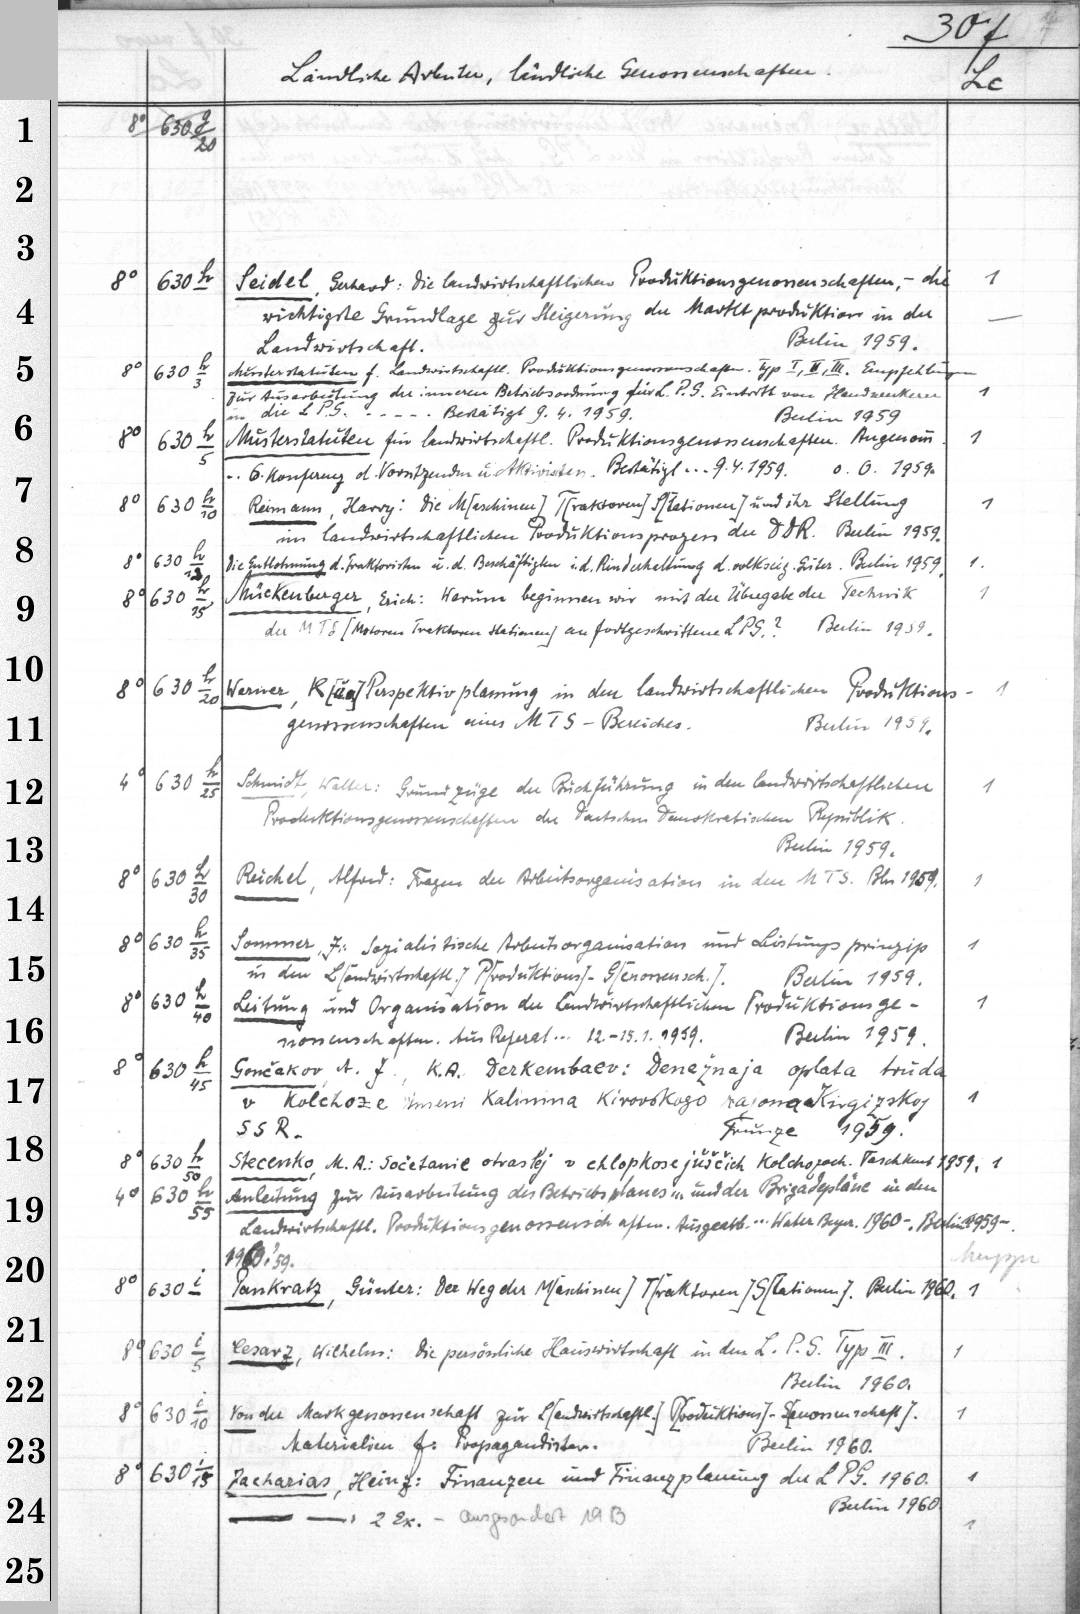 30f
Ländliche Arbeiter, ländliche Genossenschaften. Lc
1 8° 630 g/20
2
3
8° 630 h Seidel, Gerhard: Die landwirtschaftlichen Produktionsgenossenschaften, - die 1
4 wichtigste Grundlage zur Steigerung der Marktproduktion in der —
Landwirtschaft. Berlin 1959.
5 8° 630 h/3 Musterstatuten f. Landwirtschaftl. Produktionsgenossenschaften. Typ I, II, III. Empfehlungen
zur Ausarbeitung der inneren Betriebsordnung für L.P.G. Eintritt von Handwerkern 1
in die LPG. - - - - - Bestätigt 9. 4. 1959. Berlin 1959
6 8° 630 h/5 Musterstatuten für landwirtschaftl. Produktionsgenossenschaften. Angenom̅. 1
.. 6. Konferenz d. Vorsitzenden u. Aktivisten. Bestätigt ... 9.4.1959. o. O. 1959.
7 8° 630 h/10 Reimann, Harry: Die M[aschinen] T[raktoren] S[tationen] und ihr Stellung 1
im landwirtschaftlichen Produktionsprozess der DDR. Berlin 1959.
8 8° 630 h/12 Die Entlohnung d. Traktoristen u. d. Beschäftigten i. d. Rinderhaltung d. volkseig. Güter. Berlin 1959. 1.
9 8° 630 h/15 Mückenberger, Erich: Warum beginnen wir mit der Übergabe der Technik 1
der MTS [Motoren Traktoren Stationen] an fortgeschrittene LPG.? Berlin 1959.
10 8° 630 h/20 Werner, K[ug] Perspektivplanung in den landwirtschaftlichen Produktions- 1
11 genossenschaften eines MTS-Bereiches. Berlin 1959.
12 4° 630 h/25 Schmidt, Walter: Grundzüge der Buchführung in den landwirtschaftlichen 1
Produktionsgenossenschaften der Deutschen Demokratischen Republik.
13 Berlin 1959.
8° 630 h/30 Reichel, Alfred: Fragen der Arbeitsorganisation in den MTS. Bln 1959. 1
14
8° 630 h/35 Sommer, J.: Sozialistische Arbeitsorganisation und Leistungsprinzip 1
15 in den L[andwirtschaftl.] P[roduktions]- G[enossensch.]. Berlin 1959.
8° 630 h/40 Leitung und Organisation der landwirtschaftlichen Produktionsge- 1
16 nossenschaften. Aus Referat... 12.-15.1.1959. Berlin 1959.
8° 630 h/45 Gončakov, A. J., K.A. Derkembaev: Denežnaja oplata truda
17 v Kolchoze imeni Kalinina Kirovskogo rajona Kirgizskoj 1
SSR. Frunze 1959.
18 8° 630 h/50 Stecenko, M.A.: Sočetanie otraslej v chlopkosejuščich Kolchozach. Taschkent 1959. 1
4° 630 h/55 Anleitung zur Ausarbeitung des Betriebsplanes... und der Brigadepläne in den
19 Landwirtschaftl. Produktionsgenossenschaften. Ausgearb. ... Walter Beyer. 1960-. Berlin 1959-.
1960.'59.
20 Mappe
8° 630 i Pankratz, Günter: Der Weg der M[aschinen] T[raktoren] S[tationen]. Berlin 1960. 1
21 8° 630 i/5 Cesarz, Wilhelm: Die persönliche Hauswirtschaft in den L.P.G. Typ III. 1
22 Berlin 1960.
8° 630 i/10 Von der Markgenossenschaft zur L[andwirtschaftl.] P[roduktions]- G[enossenschaft]. 1
23 Materialien f. Propagandisten. Berlin 1960.
8° 630 i/15 Zacharias, Heinz: Finanzen und Finanzplanung der LPG. 1960. 1
Berlin 1960.
24 —— —, 2 Ex. - ausgesondert 19 B 1
25